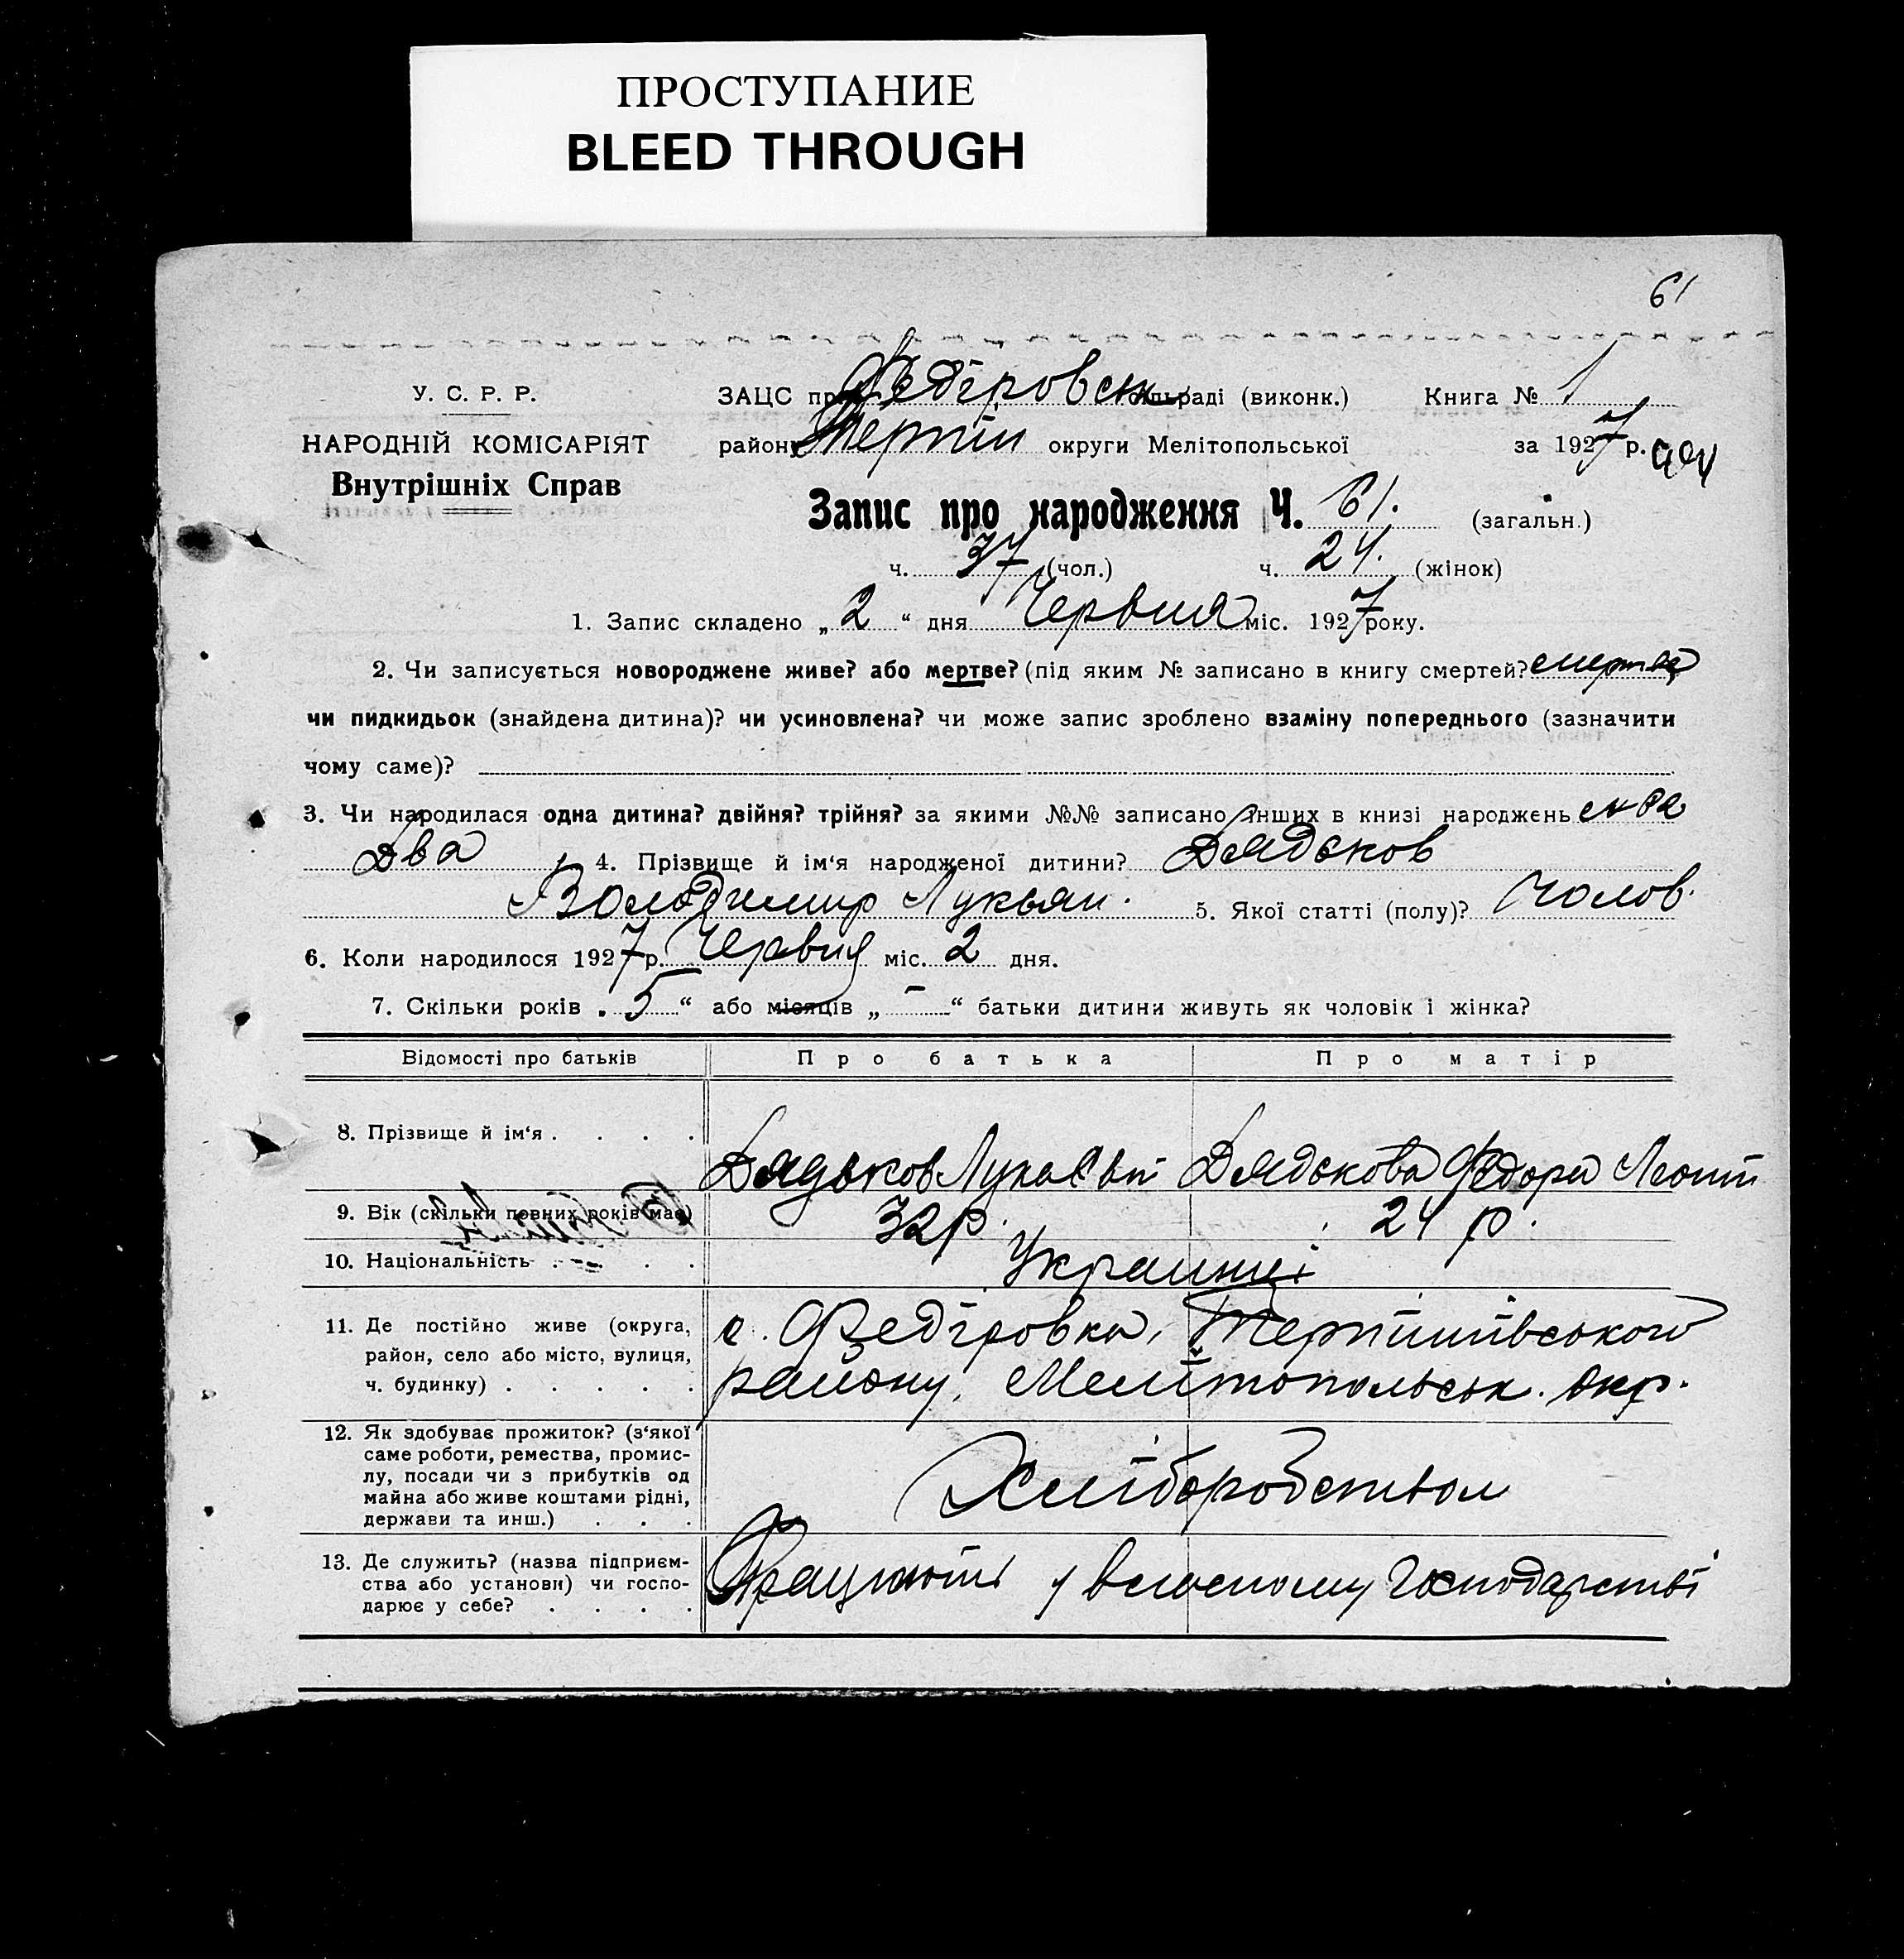 ПРОСТУПАНИЕ
BLEED THROUGH
61
У. С. Р. Р.
ЗАЦС при Федіровськ сільраді (виконк.) Книга № 1
НАРОДНІЙ КОМІСАРІЯТ
району Терпін округи Мелітопольської за 1927 р.
Внутрішніх Справ
Запис про народження Ч. 61. (загальн.)
ч. 37 (чол.) ч. 24. (жінок)
1. Запис складено „ 2 “ дня Червня міс. 1927 року.
2. Чи записується новороджене живе? або мертве? (під яким № записано в книгу смертей?
чи пидкидьок (знайдена дитина)? чи усиновлена? чи може запис зроблено взаміну попереднього (зазначити
чому саме)?
3. Чи народилася одна дитина? двійня? трійня? за якими №№ записано інших в книзі народжень
два 4. Прізвище й ім‘я народженої дитини? Дядьков
Володимир Лукьян. 5. Якої статті (полу)? Чолов.
6. Коли народилося 1927 р. Червня міс. 2 дня.
7. Скільки років „ 5 “ або місяців „ - “ батьки дитини живуть як чоловік і жінка?
Відомості про батьків Про батька Про матір
8. Прізвище й ім‘я . . . . Дядьков Лука Дядькова Федора Леонт
9. Вік (скільки повних років має) 32 р. 24 р.
10. Національність . . . . Украинці
11. Де постійно живе (округа, с. Федіровка, Терпиниївського
район, село або місто, вулиця,
ч. будинку) . . . . . району, Мелітопольськ. окр.
12. Як здобуває прожиток? (з‘якої
саме роботи, ремества, промис-
лу, посади чи з прибутків од Хліборобством
майна або живе коштами рідні,
держави та инш.) . . .
13. Де служить? (назва підприєм-
ства або установи) чи госпо- Працюють у власному господарстві
дарює у себе? . . . .